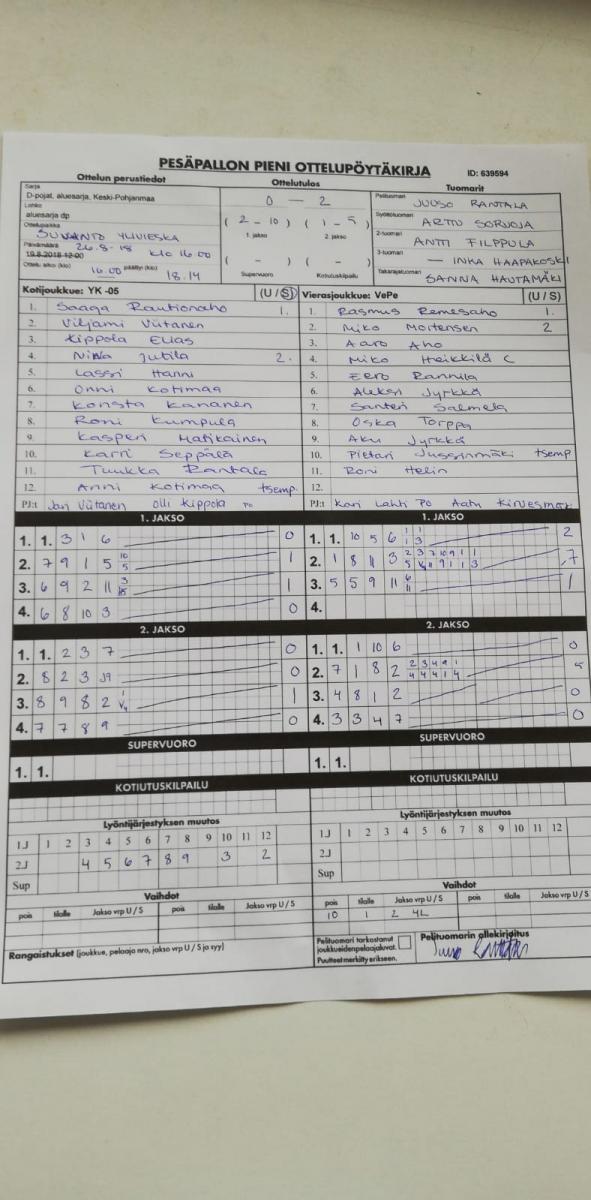 PESÄPALLON PIENI OTTELUPÖYTÄKIRJA
ID: 639594
Ottelun perustiedot
Sarja
D-pojat, aluesarja, Keski-Pohjanmaa
Lohko
aluesarja dp
Ottelupaikka
SUVANTO YLIVIESKA
Päivämäärä 26.8-18 klo 16.00
19.8.2018 12:00
Ottelu alkoi (klo) 16.00 päättyi (klo) 18.14
Ottelutulos
0 - 2
( 2 - 10 ) ( 1 - 5 )
1. jakso 2. jakso
( - ) ( - )
Supervuoro Kotiutuskilpailu
Tuomarit
Pelituomari JUUSO RANTALA
Syöttötuomari ARTTU SORVOJA
2-tuomari ANTTI FILPPULA
3-tuomari — INKA HAAPAKOSKI
Takarajatuomari SANNA HAUTAMÄKI
Kotijoukkue: YK -05 (U / S)
1. Saaga Rautionaho 1.
2. Viljami Viitanen
3. Kippola Elias
4. Niila Jutila 2.
5. Lassi Hanni
6. Onni Kotimaa
7. Konsta Kananen
8. Roni Kumpula
9. Kasperi Matikainen
10. Karri Seppälä
11. Tuukka Rantala
12. Anni Kotimaa tsemp.
PJ:t Jari Viitanen Olli Kippola PO
Vierasjoukkue: VePe (U / S)
1. Rasmus Remesaho 1.
2. Miko Mortensen 2
3. Aaro Aho
4. Miko Heikkilä C
5. Eero Rannila
6. Aleksi Jyrkkä
7. Santeri Salmela
8. Oska Torppa
9. Aku Jyrkkä
10. Pietari Jussinmäki tsemp
11. Roni Helin
12.
PJ:t Kari Lahti PO Aatu
1. JAKSO
1. 1. 3 1 6 0
2. 7 9 1 5 10 5 1
3. 6 9 2 11 3 1
4. 6 8 10 3 0
1. JAKSO
1. 1. 10 5 6 1 1 1 3 2
2. 1 8 11 3 2 3 7 10 9 1 1 7
3. 5 5 9 11 6 11 1
4.
2. JAKSO
1. 1. 2 3 7 0
2. 8 2 3 0
3. 8 9 8 2 1
4. 7 7 8 9 0
2. JAKSO
1. 1. 1 10 6 0
2. 7 1 8 2 2 3 4 9 1 4 4 4 1 4 5
3. 4 8 1 2 0
4. 3 3 4 7 0
SUPERVUORO
1. 1.
SUPERVUORO
1. 1.
KOTIUTUSKILPAILU
KOTIUTUSKILPAILU
Lyöntijärjestyksen muutos
1J 1 2 3 4 5 6 7 8 9 10 11 12
2J 4 5 6 7 8 9 3 2
Sup
Lyöntijärjestyksen muutos
1J 1 2 3 4 5 6 7 8 9 10 11 12
2J
Sup
Vaihdot
pois tilalle Jakso vrp U / S pois tilalle Jakso vrp U / S
Vaihdot
pois tilalle Jakso vrp U / S pois tilalle Jakso vrp U / S
10 1 2 4L
Rangaistukset (joukkue, pelaaja nro, jakso vrp U / S ja syy)
Pelituomari tarkastanut
joukkueiden pelaajaluvat.
Puutteet merkitty erikseen.
Pelituomarin allekirjoitus